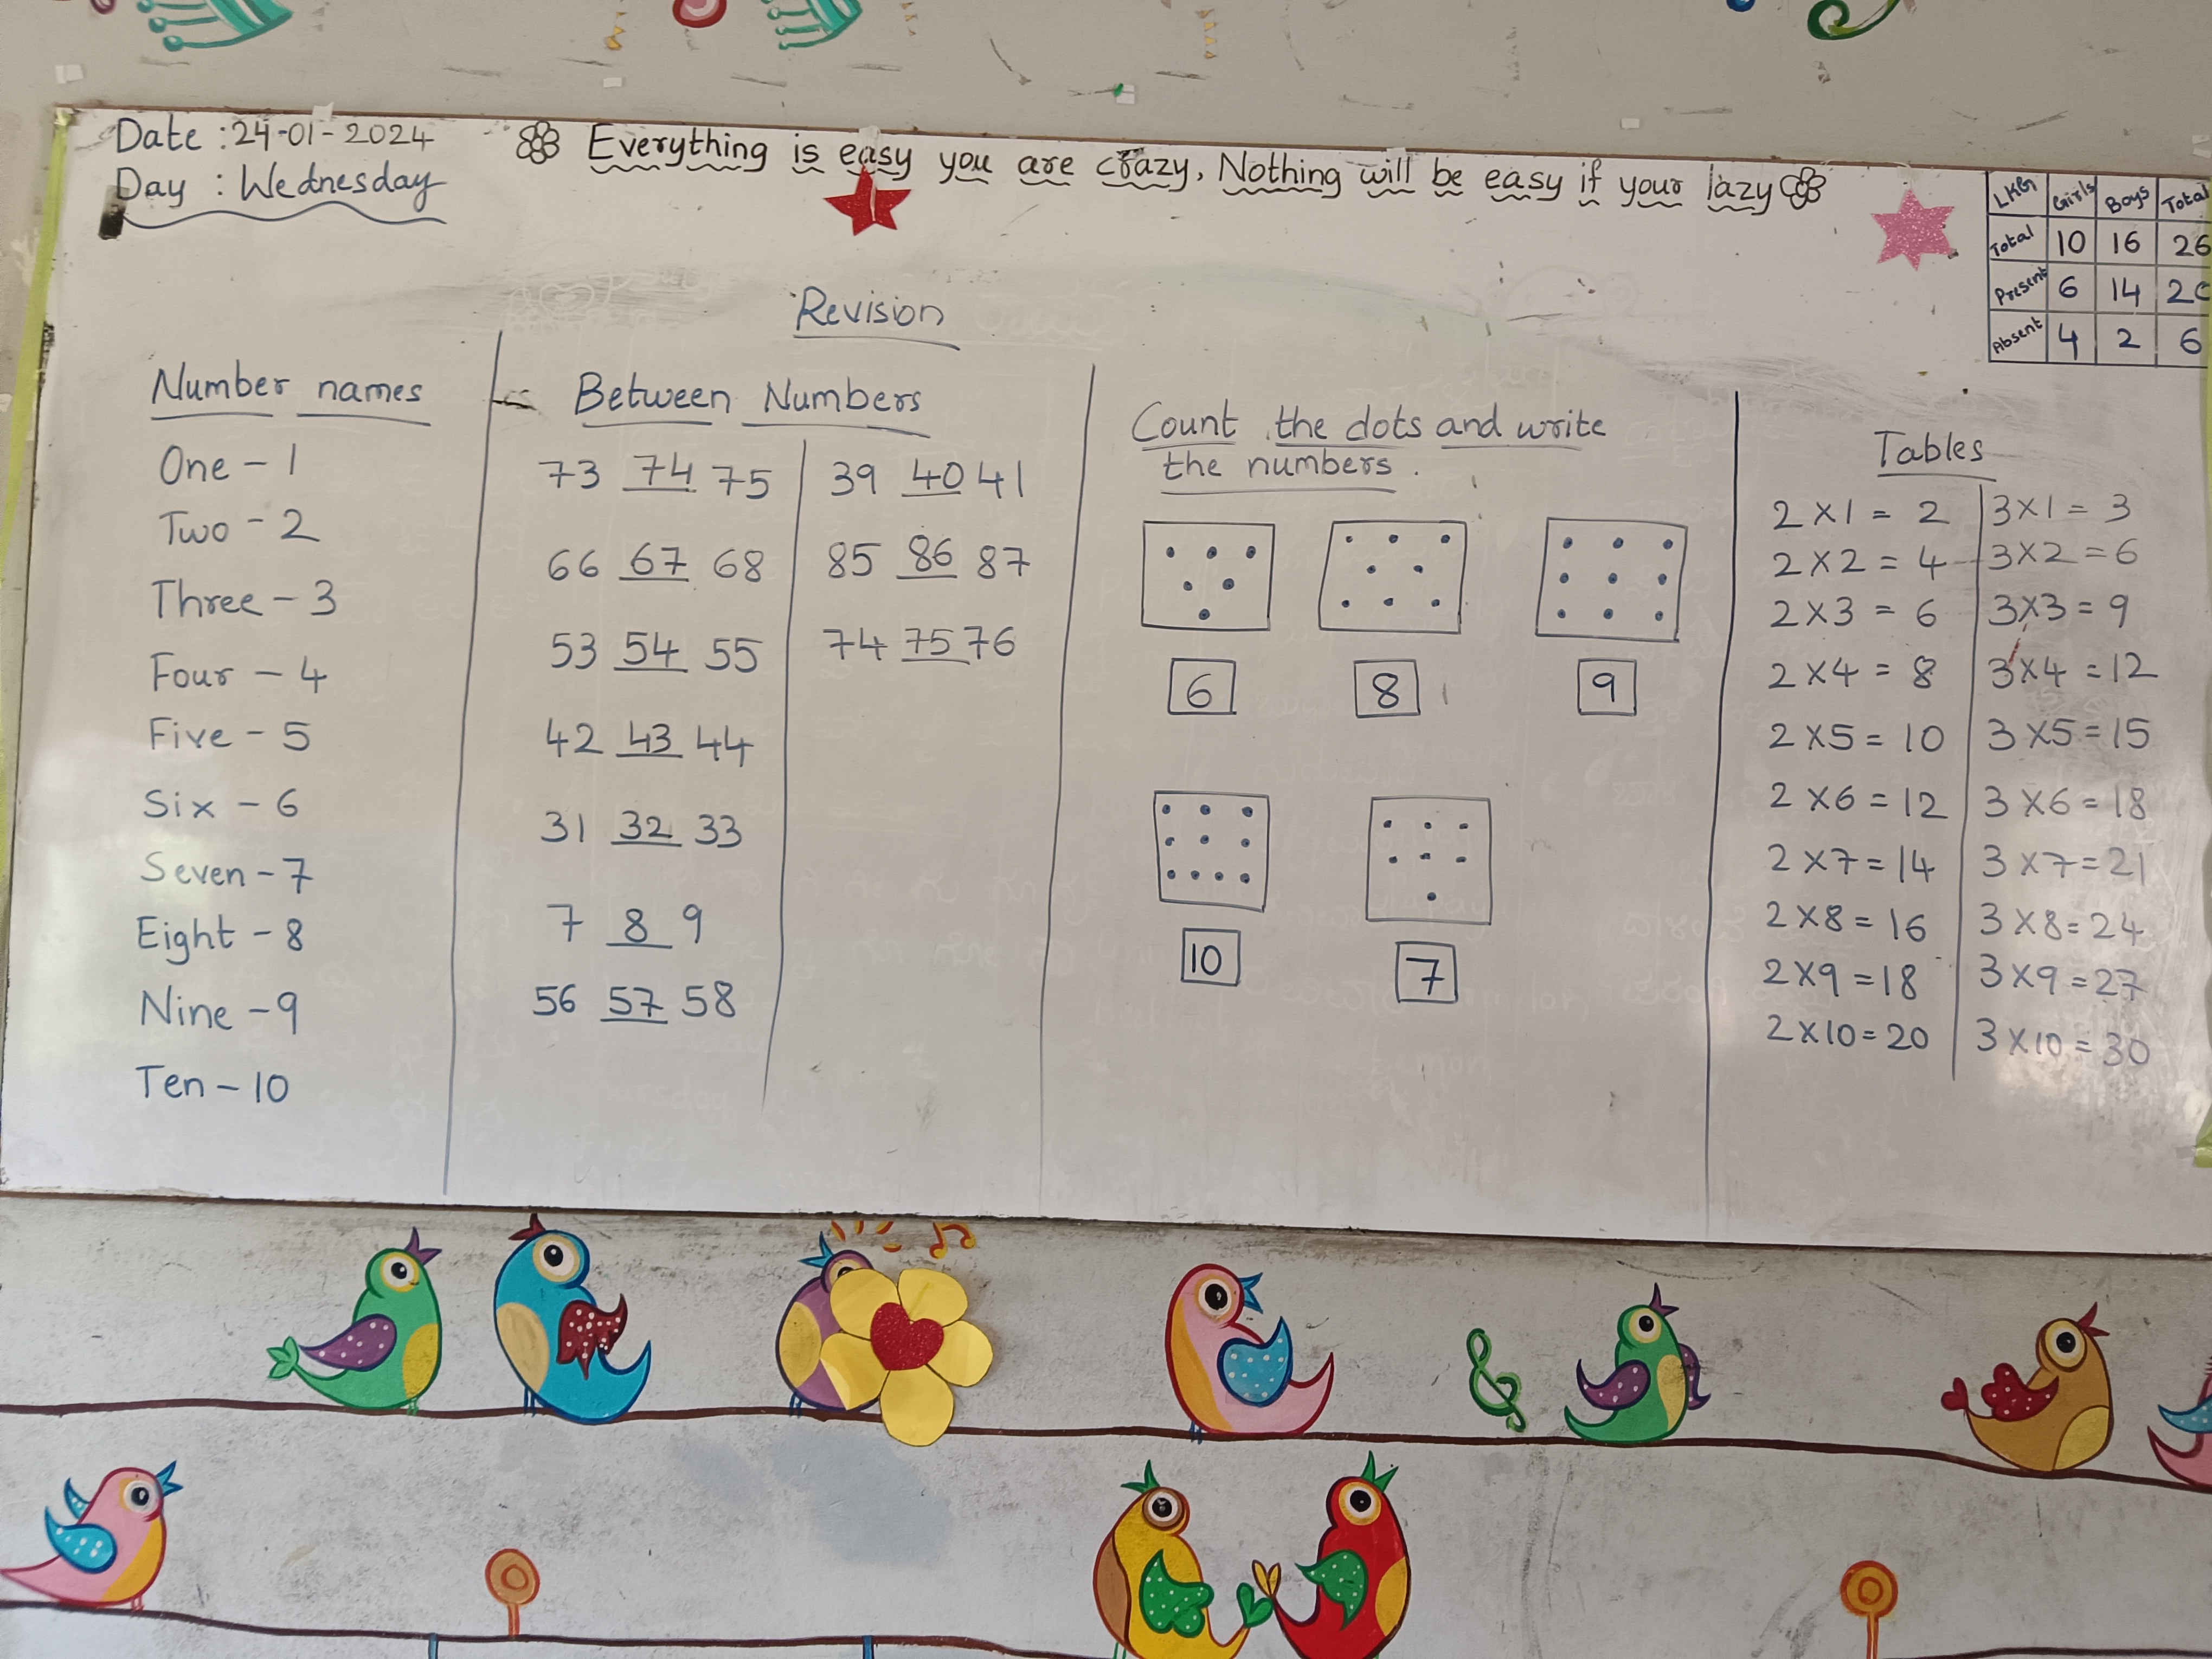 Date : 24-01-2024
Day : Wednesday
Everything is easy you are crazy, Nothing will be easy if your lazy
LKG Girls Boys Total
Total 10 16 26
Present 6 14 20
Absent 4 2 6
Revision
Number names
One - 1
Two - 2
Three - 3
Four - 4
Five - 5
Six - 6
Seven - 7
Eight - 8
Nine - 9
Ten - 10
Between Numbers
73 74 75
66 67 68
53 54 55
42 43 44
31 32 33
7 8 9
56 57 58
39 40 41
85 86 87
74 75 76
Count the dots and write
the numbers.
6 8 9
10 7
Tables
2 X 1 = 2
2 X 2 = 4
2 X 3 = 6
2 X 4 = 8
2 X 5 = 10
2 X 6 = 12
2 X 7 = 14
2 X 8 = 16
2 X 9 = 18
2 X 10 = 20
3 X 1 = 3
3 X 2 = 6
3 X 3 = 9
3 X 4 = 12
3 X 5 = 15
3 X 6 = 18
3 X 7 = 21
3 X 8 = 24
3 X 9 = 27
3 X 10 = 30